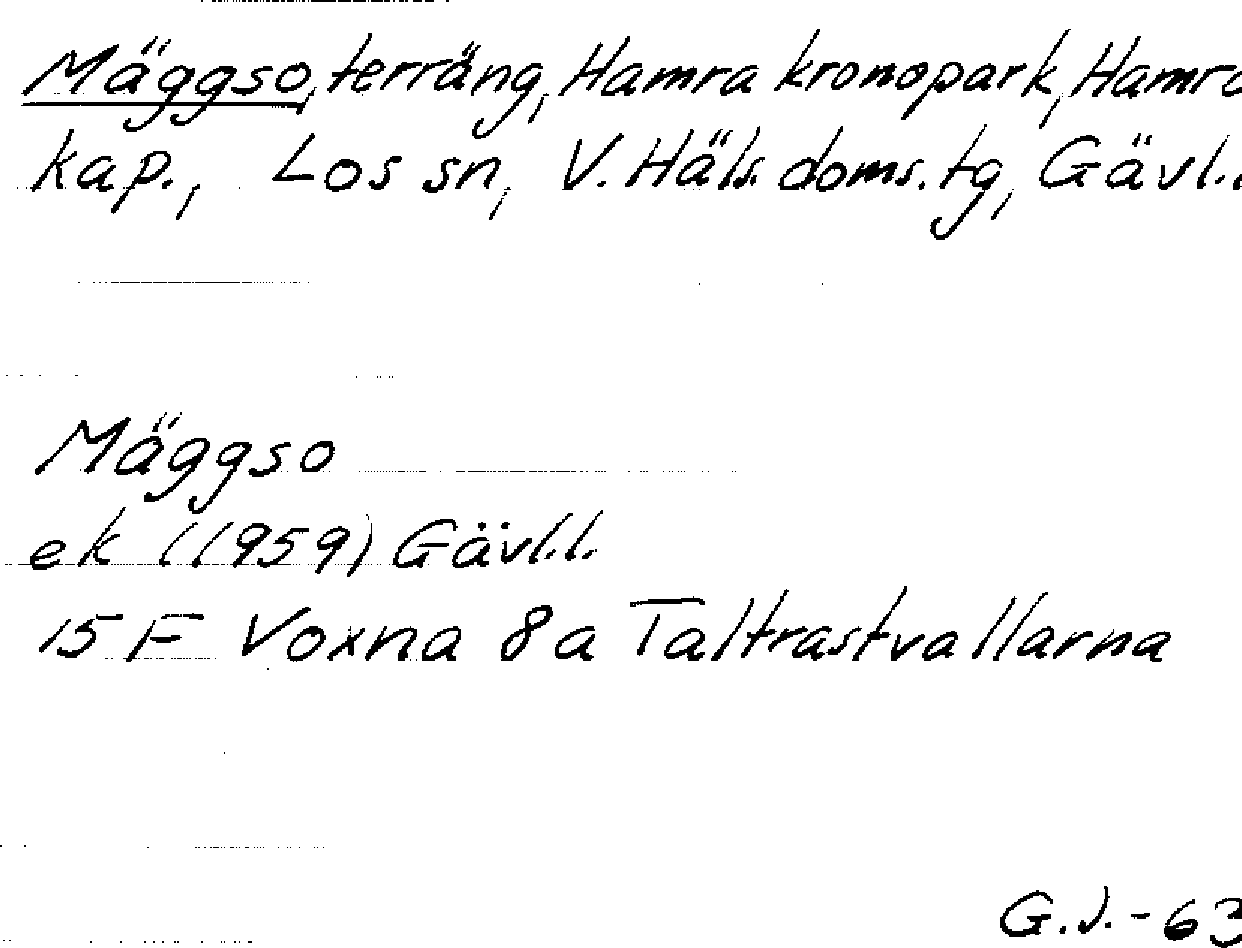 Mäggso, terräng, Hamra kronopark, Hamra
kap., Los sn, V. Häls. doms. tg, Gävl.l.
Mäggso
ek (1959) Gävl.l.
15 F Voxna 8a Taltrastvallarna
G.J.-63